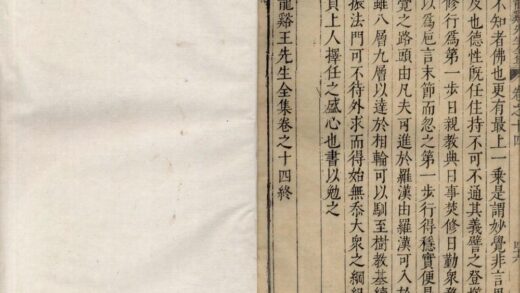 不知者佛也更有最上一乘是謂妙覺非言思
及也德性既任住持不可不通其義譬之登
修行爲第一步日親教典日事焚修日勤衆務
以爲巵言末節而忽之第一步行得穩實便是
覺之路頭由凡夫可進於羅漢由羅漢可入於
雖八層九層以達於相輪可以馴至樹教基
振法門可不待外求而得始無忝大衆之綱
貞上人擇任之盛心也書以勉之
龍谿王先生全集卷之十四終